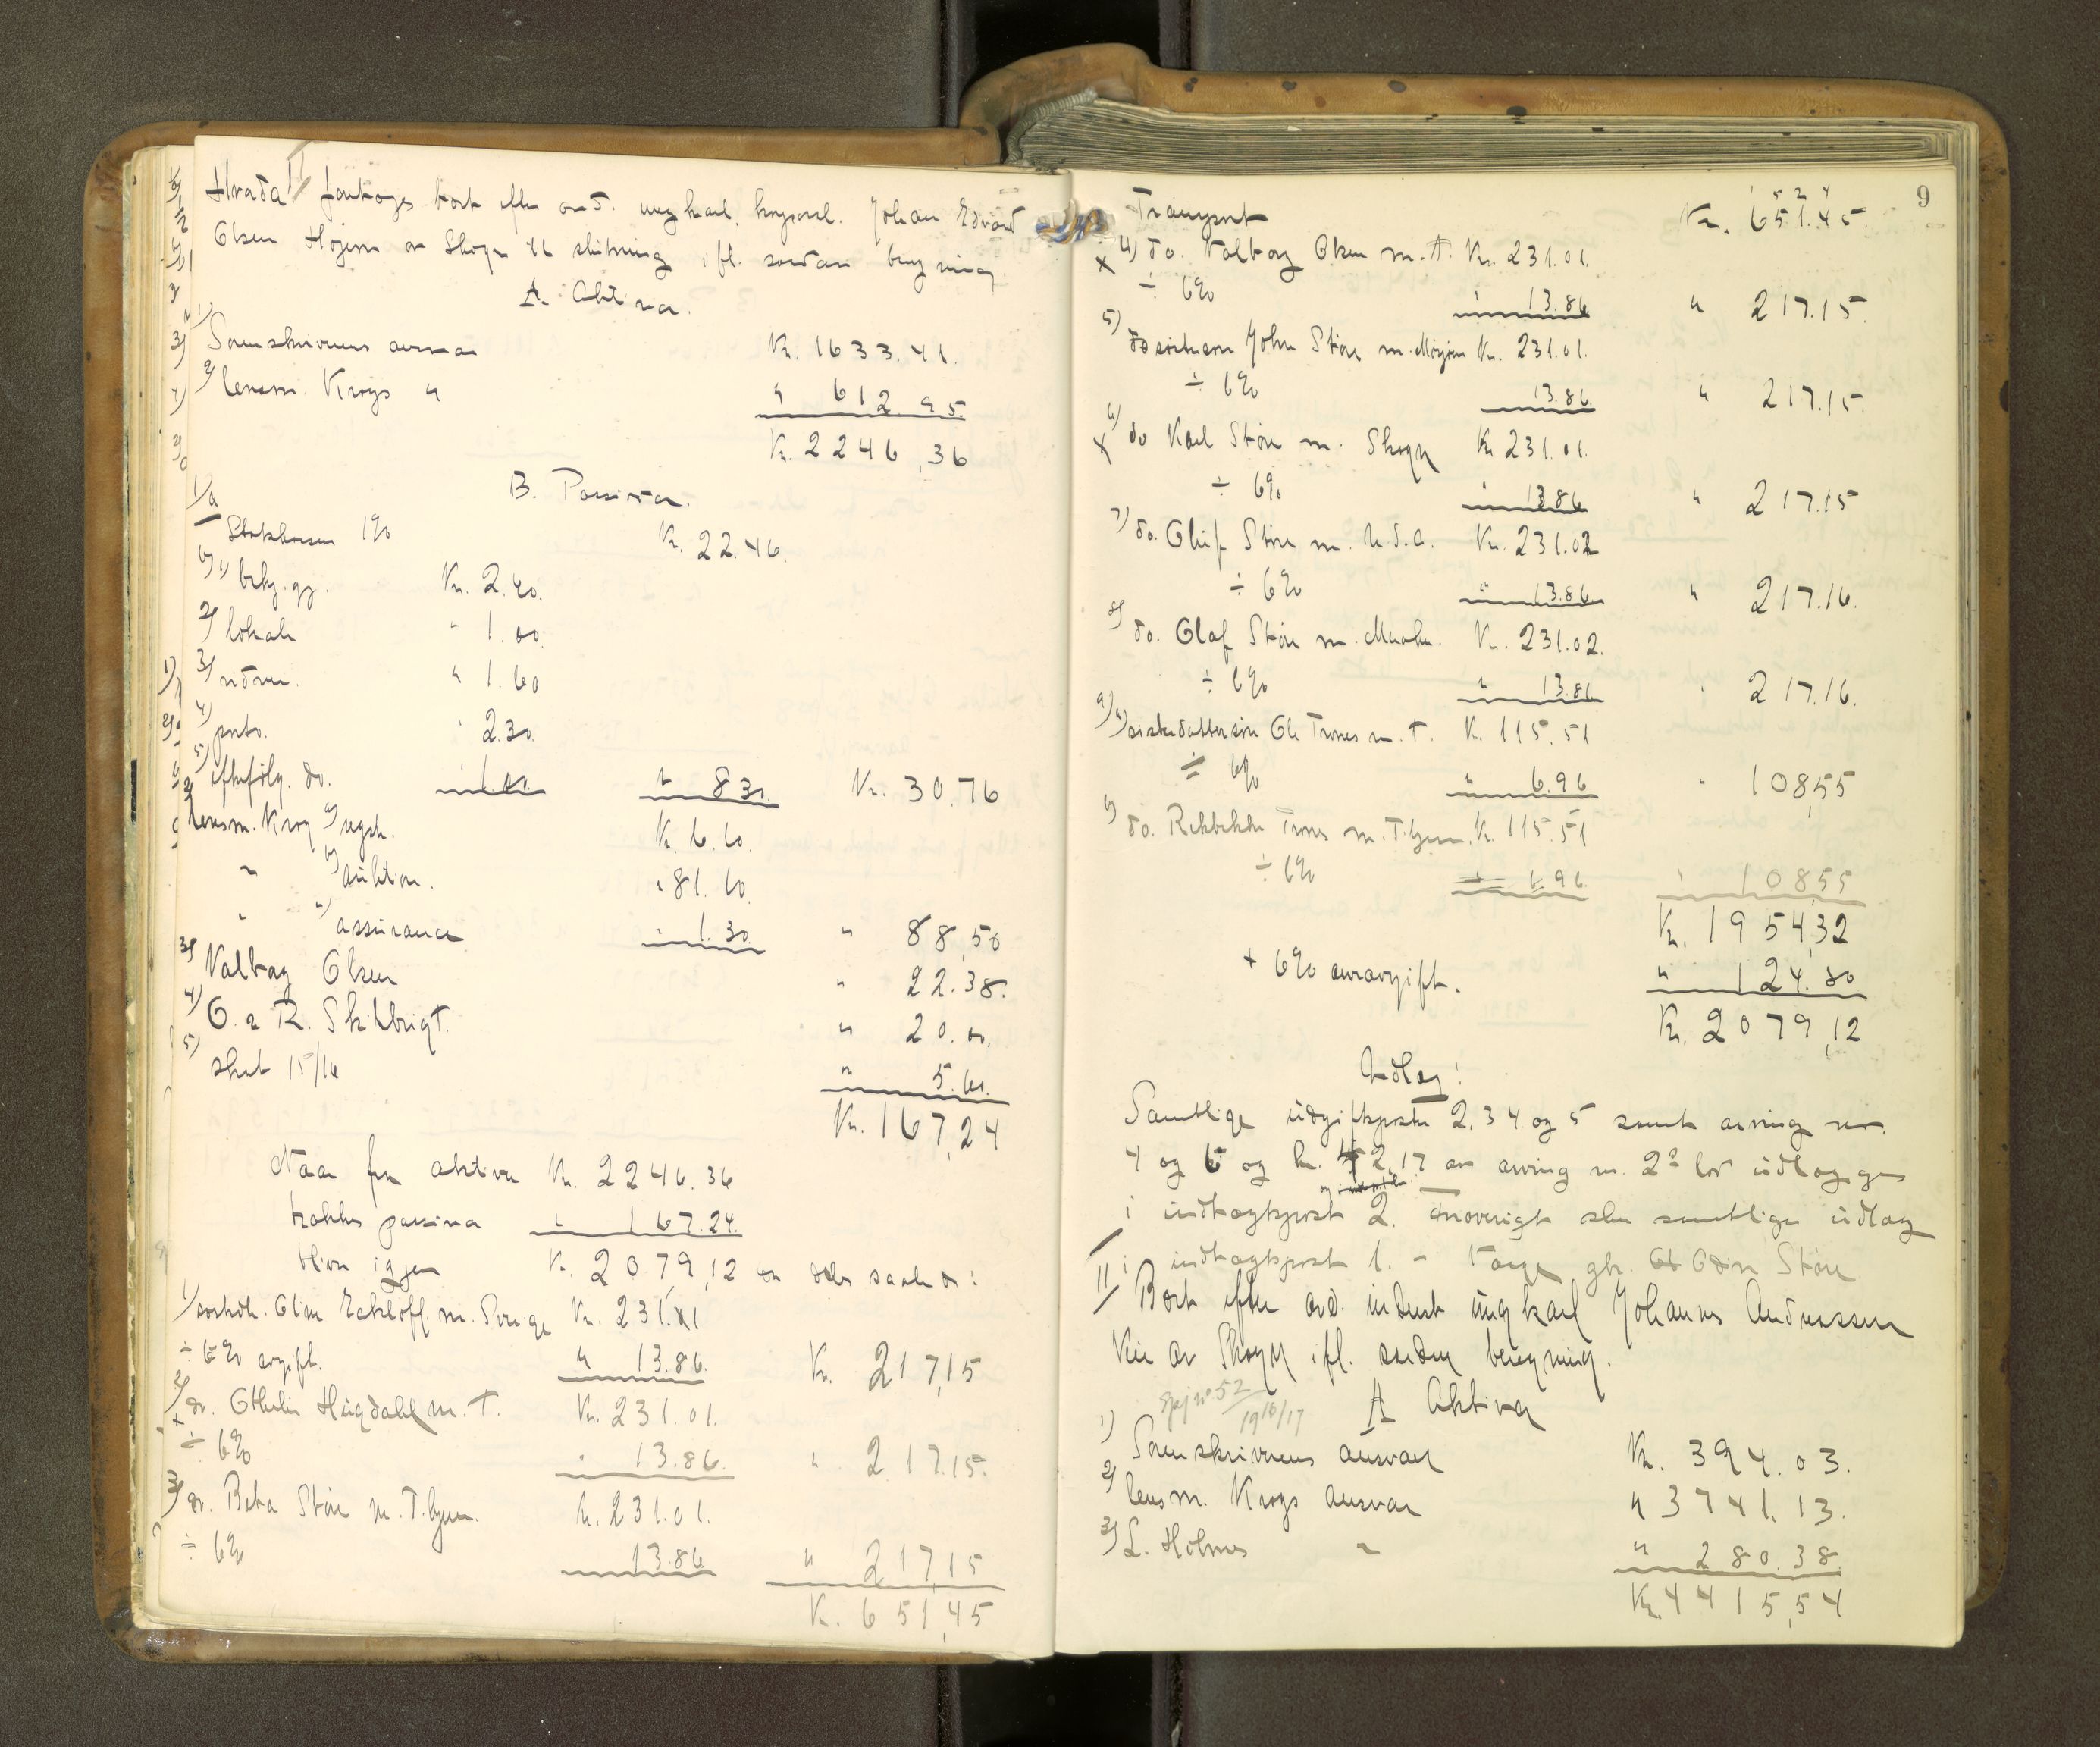 foretages bort efter avd. ungkarl Johan Edvard
Olsen Højem av Skogn til slutning ifl. saadan beregning
A. Aktiva.
1) Sorenskriverens ansvar Kr. 1633.41.
2) lensm. Krogs " " 612.95.
Kr. 2246,36
B. Passiva.
1) a Statskassen 1% Kr. 22.46.
b) 1) bekj. gj. Kr. 2.40.
2) lokale " 1.00.
3) vidner. " 1.60
4) porto. " 2.30.
5) efterfølg. do. " 1.00. " 8.30. Kr. 30.76
2) lensm. Krog a) regst. Kr. 6.60.
" b) auktion. " 81.60.
" c) assurance " 1.30. " 88,50
3) Valborg Olsen " 22.38.
4) O. a R. Skilbrigt. " 20.00.
5) skat 15/16 " 5.60.
Kr. 167,24
Naar fra aktiva Kr. 2246.36
trækkes passiva " 167.24.
blir igjen Kr. 2079,12 som deles saaledes:
1) Oline Ekeloff m. Sverige Kr. 231.01
÷ 6% avgift. " 13.86. Kr. 217,15
2) do. Othelie Heigdahl m. T. Kr. 231.01.
÷ 6% " 13.86. " 217.15.
3) do. Beta Støre m. T.hjem. Kr. 231.01.
÷ 6% 13.86 " 217,15
Kr. 651,45
9
Transport Kr. 651.45.
4) do. Valborg Olsen m. T. Kr. 231.01.
÷ 6% " 13.86 " 217.15.
5) do søstersøn John Støre m. Kr. 231.01.
÷ 6% 13.86. " 217.15.
6) do Karl Støre m. Skogn Kr 231.01.
÷ 6% " 13.86 " 217.15
7) do. Oluf Støre m. U.S.A. Kr. 231.02
÷ 6% " 13.86. " 217.16.
8) do. Olaf Støre m. Kr. 231.02.
÷ 6% " 13.86 " 217.16.
9) a) søsterdattersøn Ole Trones m. T. Kr. 115.51
÷ 6% " 6.96 " 108,55
b) do. Rebekka Trones m. T.hjem. Kr 115.51
÷ 6% " 6.96. " 108,55
Kr. 1954,32
+ 6% arveavgift. " 124.80
Kr. 2079,12
Udlæg:
Samtlige udgiftsposter 2, 3 4 og 5 samt arving nr.
4 og 6 og kr. 2,17 av arving nr. 2 blir udlægges
i indtægtspost 2. Forøvrigt sker samtlige udlæg
i indtægtspost 1. - Odin Støre
II Bort efter avd. inderst ungkarl Johannes Andreassen
av Skogn ifl. saadan beregning.
nr 52
1916/17
A Aktiva
1) Sorenskriverens ansvar Kr. 394.03.
2) lensm. Krogs ansvar " 3741.13.
3) L. Holmes " " 280.38.
Kr. 4415,54